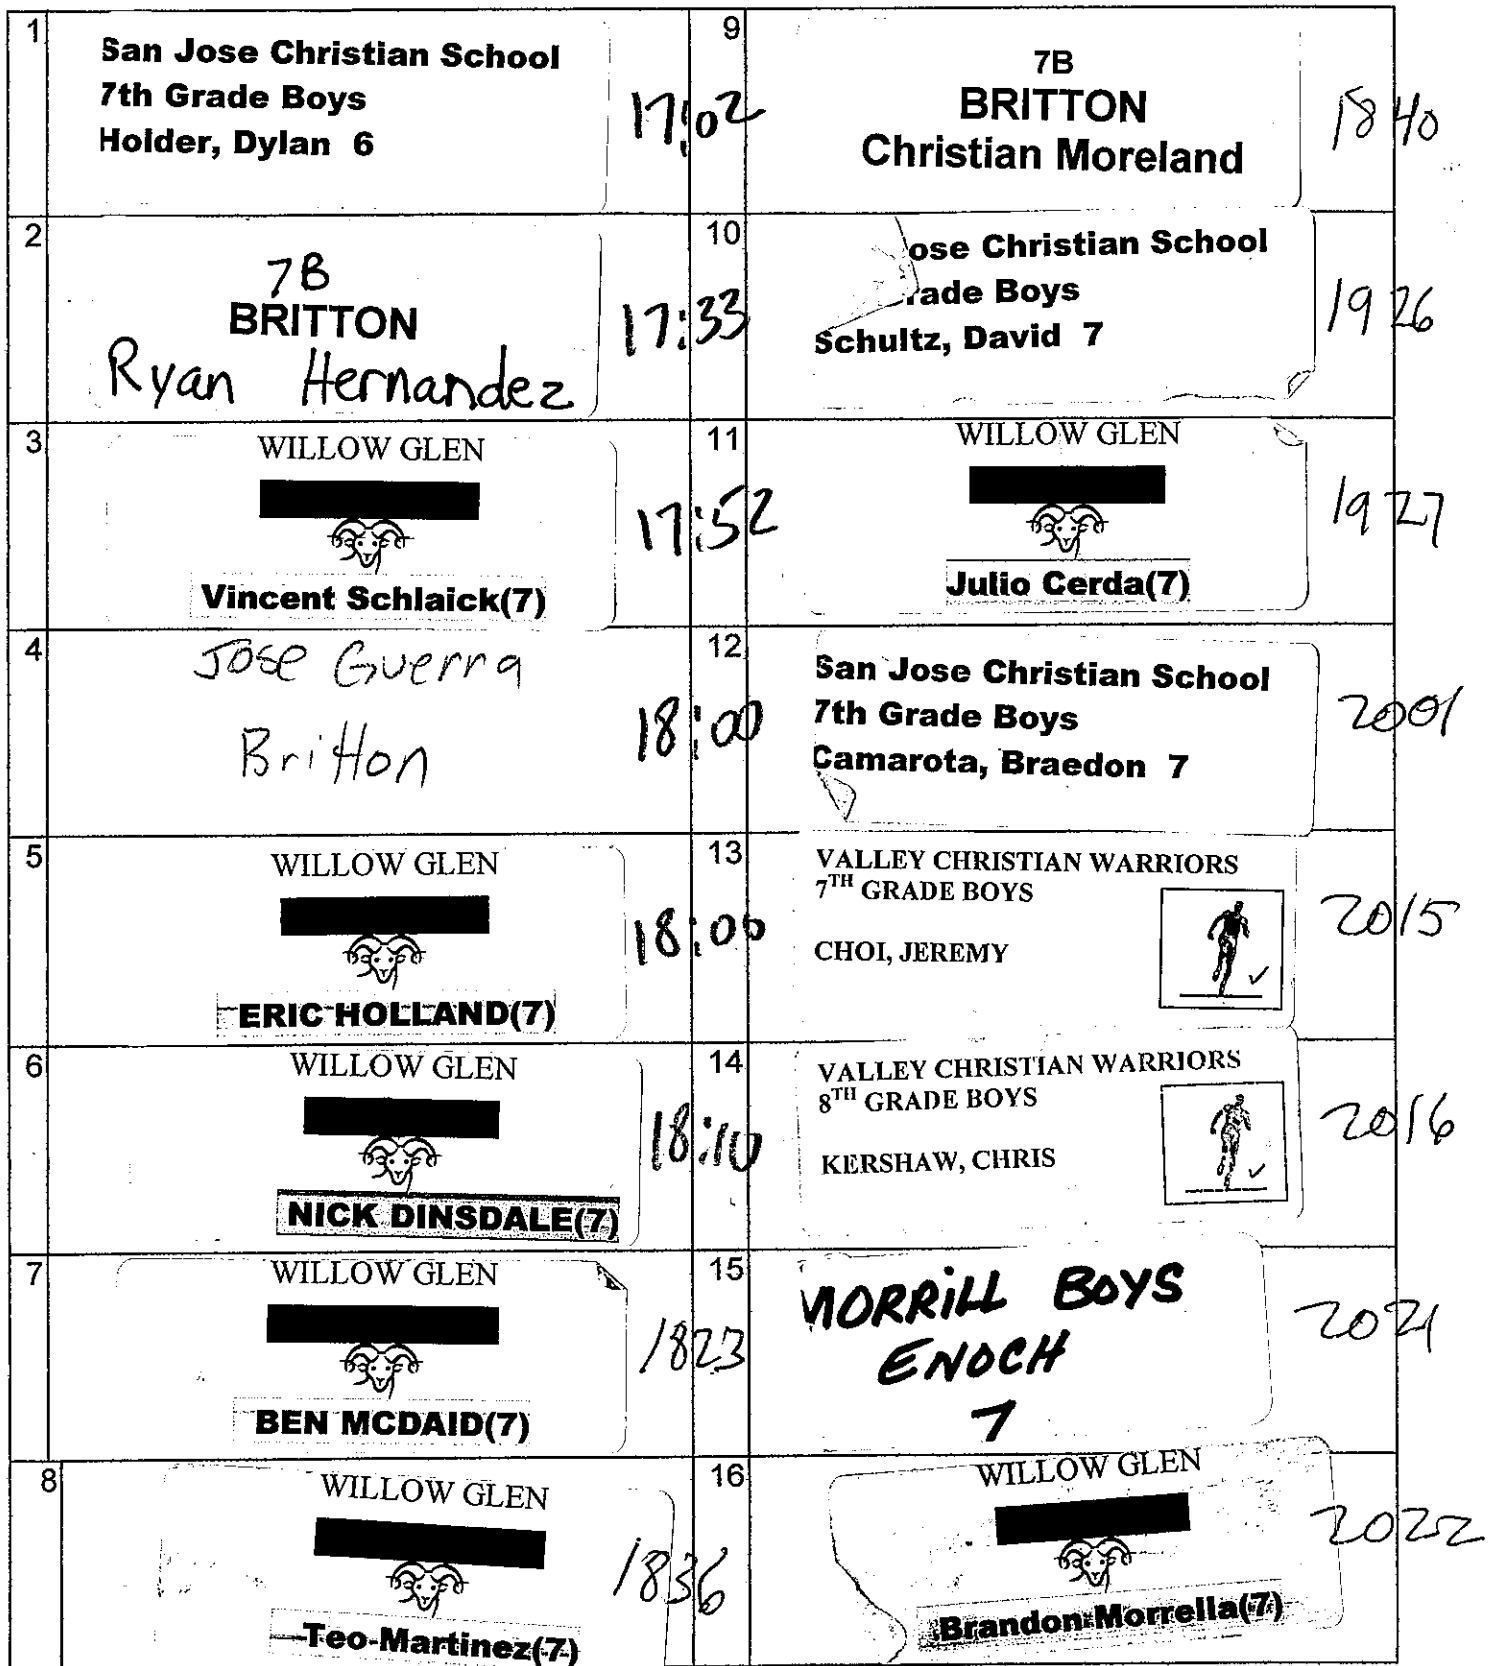 1
San Jose Christian School
7th Grade Boys
Holder, Dylan 6
17:02
2
7B
BRITTON
Ryan Hernandez
17:33
3
WILLOW GLEN
Vincent Schlaick(7)
17:52
4
Jose Guerra
Britton
18:00
5
WILLOW GLEN
ERIC HOLLAND(7)
6
WILLOW GLEN
NICK DINSDALE(7)
18:10
7
WILLOW GLEN
BEN MCDAID(7)
1823
8
WILLOW GLEN
Teo Martinez(7)
1836
9
7B
BRITTON
Christian Moreland
1840
10
ose Christian School
rade Boys
Schultz, David 7
1926
11
WILLOW GLEN
Julio Cerda(7)
1927
12
San Jose Christian School
7th Grade Boys
Camarota, Braedon 7
2001
13
VALLEY CHRISTIAN WARRIORS
7TH GRADE BOYS
CHOI, JEREMY
2015
14
VALLEY CHRISTIAN WARRIORS
8TH GRADE BOYS
KERSHAW, CHRIS
2016
15
MORRiLL BOYS
ENOCH
7
2021
16
WILLOW GLEN
Brandon Morrella(7)
2022